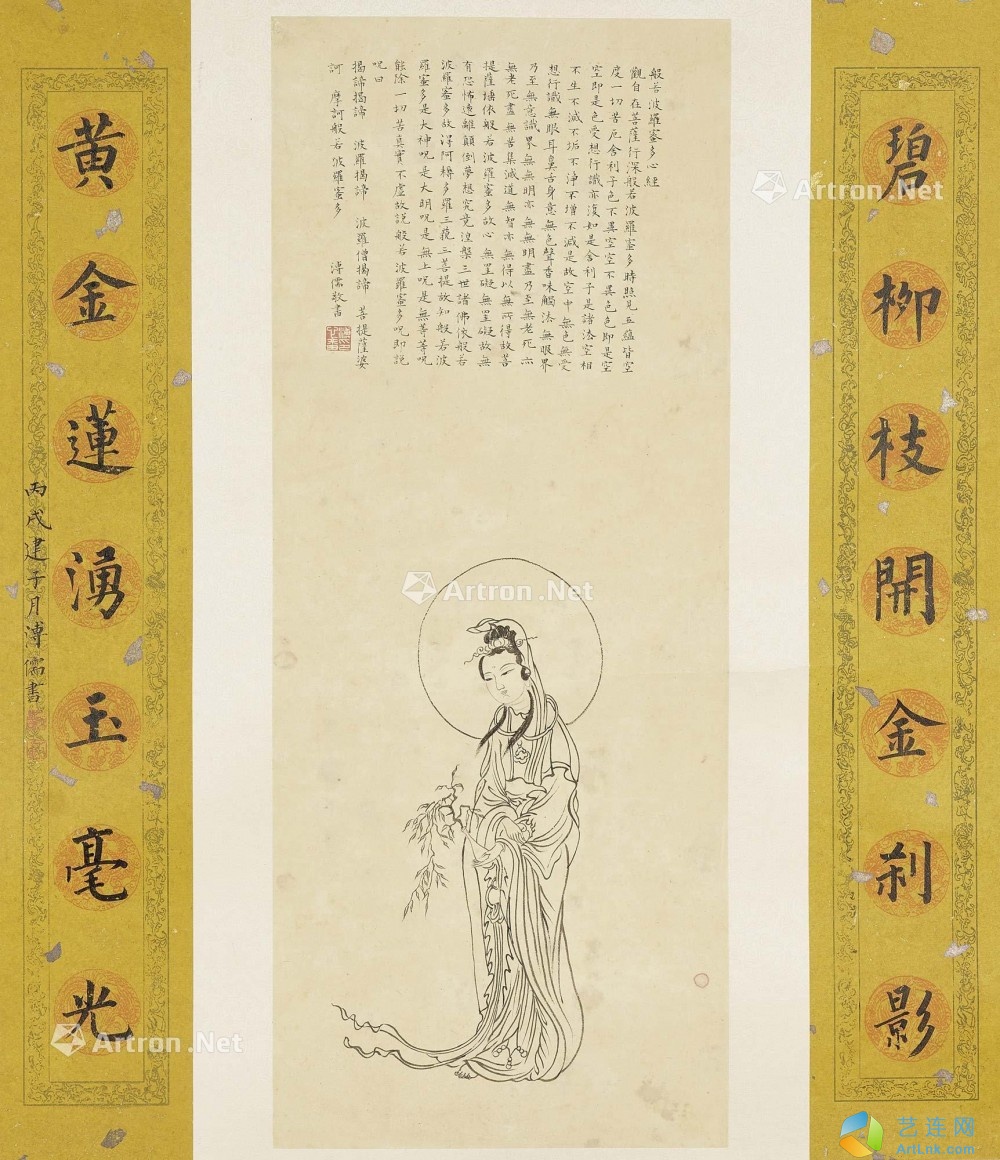 碧柳枝開金刹影
般若波羅蜜多心經
觀自在菩薩行深般若波羅蜜多時照見五蘊皆空
度一切苦厄舍利子色不異空空不異色色即是空
空即是色受想行識亦復如是舍利子是諸法空相
不生不滅不垢不淨不增不減是故空中無色無受
想行識無眼耳鼻舌身意無色聲香味觸法無眼界
乃至無意識界無無明亦無無明盡乃至無老死亦
無老死盡無苦集滅道無智亦無得以無所得故菩
提薩埵依般若波羅蜜多故心無罣礙無罣礙故無
有恐怖遠離顛倒夢想究竟涅槃三世諸佛依般若
波羅蜜多故得阿耨多羅三藐三菩提故知般若波
羅蜜多是大神呪是大明呪是無上呪是無等等呪
能除一切苦真實不虛故說般若波羅蜜多呪即說
呪曰
揭諦揭諦 波羅揭諦 波羅僧揭諦 菩提薩婆
訶 摩訶般若波羅蜜多 溥儒敬書
黃金蓮湧玉毫光
丙戌建子月溥儒書
Artron.Net
Artron.Net
Artron.Net
Artron.Net
Artron.Net
艺连网
ArtLnk.com